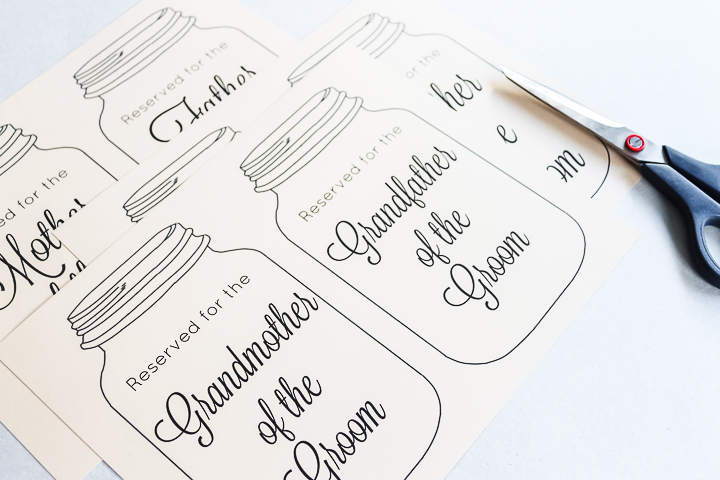 Reserved for the
Father
ed for the
Mother
or the
her
e
om
Reserved for the
Grandfather
of the
Groom
Reserved for the
Grandmother
of the
Groom